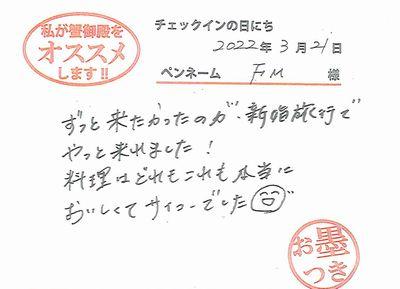 私が蟹御殿を
オススメ
します!!
チェックインの日にち
2022年3月21日
ペンネーム FM 様
ずっと来たかったのが、新婚旅行で
やっと来れました!
料理はどれもこれも本当に
おいしくてサイコーでした
お墨
つき